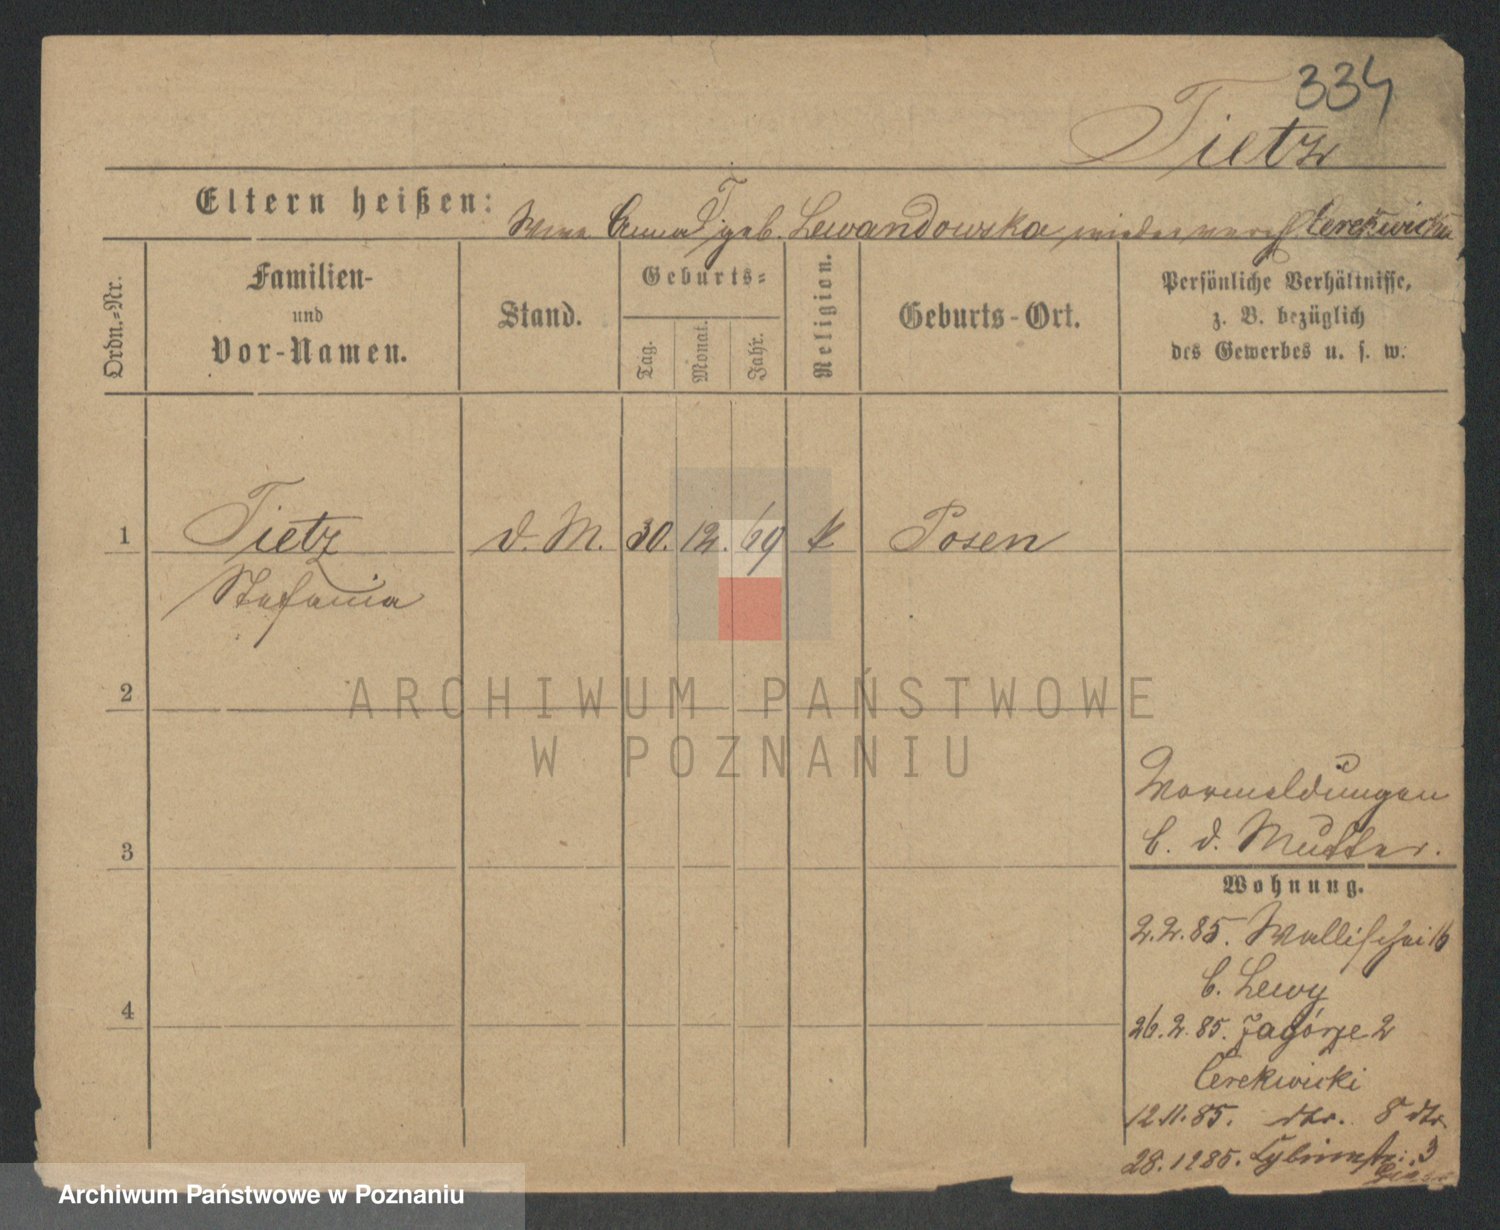 334
Tietz
Eltern heißen: Wwe Anna T geb. Lewandowska wieder verehl. Cerekwicka
Ordn.-Nr.
Familien-
und
Vor-Namen.
Stand.
Geburts-
Tag.
Monat.
Jahr.
Religion.
Geburts-Ort.
Persönliche Verhältnisse,
z. B. bezüglich
des Gewerbes u. s. w.
1 Tietz d. M. 30. 12. 69 k Posen
Stefania
2
ARCHIWUM PAŃSTWOWE
W POZNANIU
Vormeldungen
b. d. Mutter.
3
Wohnung.
2.2.85. Wallischei 16
b. Lewy
4
26.2.85. Zagórze 2
Cerekwicki
12.11.85. dto. 8 dto
28.1285. 3
Archiwum Państwowe w Poznaniu